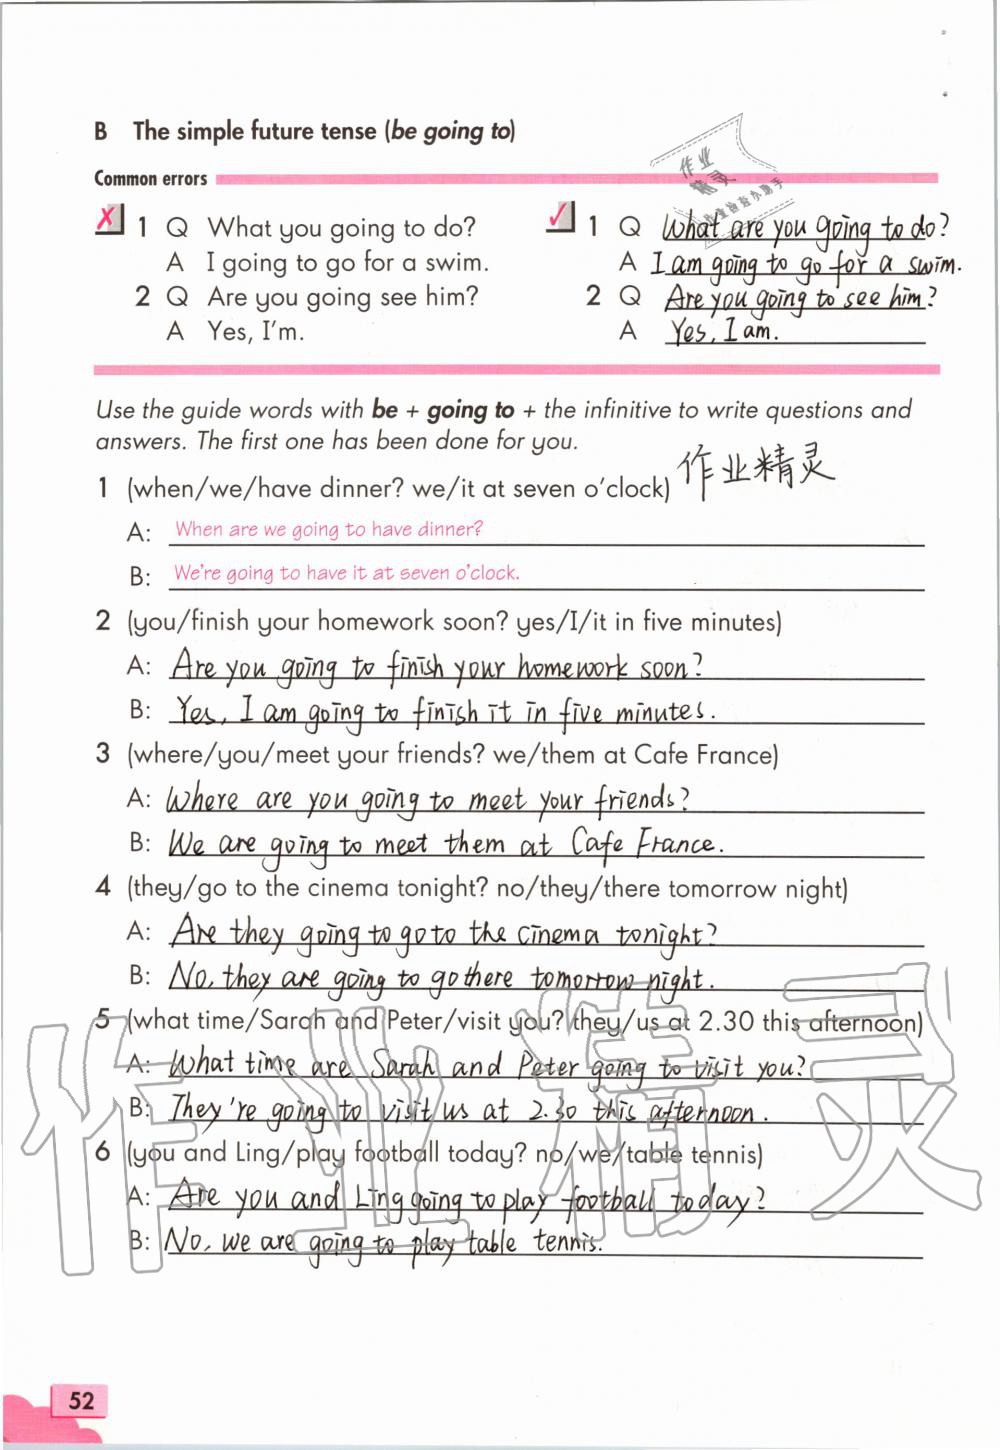 B The simple future tense (be going to)
作业
精灵
作业检查小助手
Common errors
✗ 1 Q What you going to do? ✓ 1 Q What are you going to do?
A I going to go for a swim. A I am going to go for a swim.
2 Q Are you going see him? 2 Q Are you going to see him?
A Yes, I'm. A Yes, I am.
Use the guide words with be + going to + the infinitive to write questions and
answers. The first one has been done for you.
作业精灵
1 (when/we/have dinner? we/it at seven o'clock)
A: When are we going to have dinner?
B: We're going to have it at seven o'clock.
2 (you/finish your homework soon? yes/I/it in five minutes)
A: Are you going to finish your homework soon?
B: Yes, I am going to finish it in five minutes.
3 (where/you/meet your friends? we/them at Cafe France)
A: Where are you going to meet your friends?
B: We are going to meet them at Cafe France.
4 (they/go to the cinema tonight? no/they/there tomorrow night)
A: Are they going to go to the cinema tonight?
B: No, they are going to go there tomorrow night.
5 (what time/Sarah and Peter/visit you? they/us at 2.30 this afternoon)
A: What time are Sarah and Peter going to visit you?
B: They're going to visit us at 2.30 this afternoon.
6 (you and Ling/play football today? no/we/table tennis)
A: Are you and Ling going to play football today?
B: No, we are going to play table tennis.
作业精灵
52